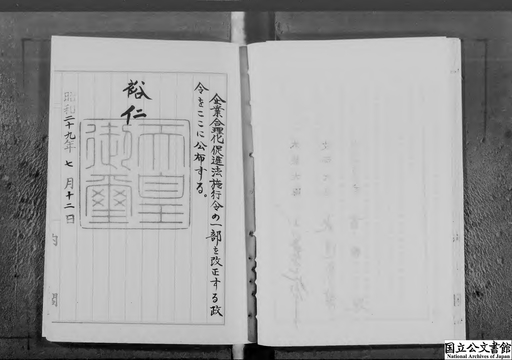 企業合理化促進法施行令の一部を改正する政
令をここに公布する。
裕仁
天皇御璽
昭和二十九年七月十二日
国立公文書館
National Archives of Japan